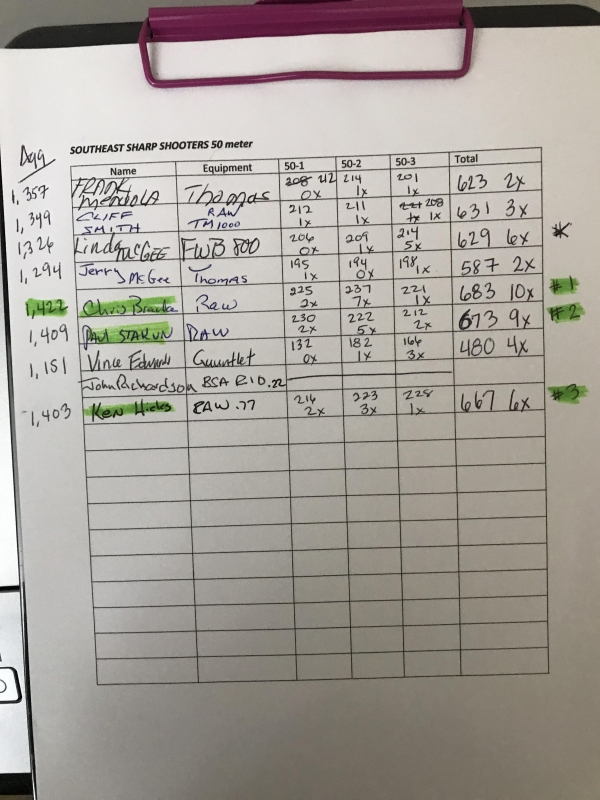 Agg
SOUTHEAST SHARP SHOOTERS 50 meter
Name Equipment 50-1 50-2 50-3 Total
1,357 FRANK MENDOLA Thomas 208 212 0x 214 1x 201 1x 623 2x
1,349 CLIFF SMITH RAW TM1000 212 1x 211 1x 221 208 1x 1x 631 3x
1,326 Linda McGEE FWB 800 206 0x 209 1x 214 5x 629 6x *
1,294 Jerry McGee Thomas 195 1x 194 0x 198 1x 587 2x
1,422 Chris Bracke Raw 225 2x 237 7x 221 1x 683 10x #1
1,409 PAUL STAKUN RAW 230 2x 222 5x 212 2x 673 9x #2
1,151 Vince Edwards Gauntlet 132 0x 182 1x 164 3x 480 4x
John Richardson BSA R10 .22
1,403 Ken Hicks RAW .22 216 2x 223 3x 228 1x 667 6x #3